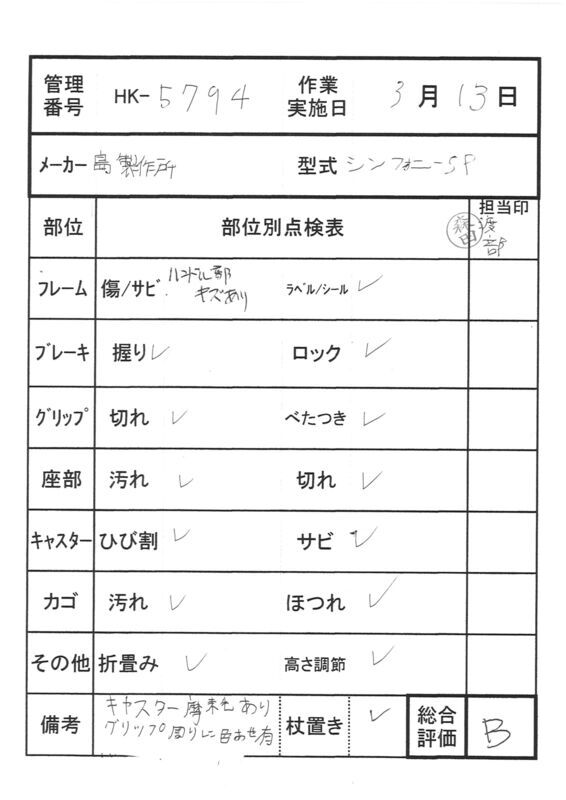 管理番号 HK-5794 作業実施日 3月13日
メーカー 島製作所 型式 シンフォニーSP
部位 部位別点検表 担当印
森田 渡部
フレーム 傷/サビ ハンドル部キズあり ラベル/シール ✓
ブレーキ 握り ✓ ロック ✓
グリップ 切れ ✓ べたつき ✓
座部 汚れ ✓ 切れ ✓
キャスター ひび割 ✓ サビ ✓
カゴ 汚れ ✓ ほつれ ✓
その他 折畳み ✓ 高さ調節 ✓
備考 キャスター摩耗あり 杖置き ✓ 総合評価 B
グリップ周りに色あせ有